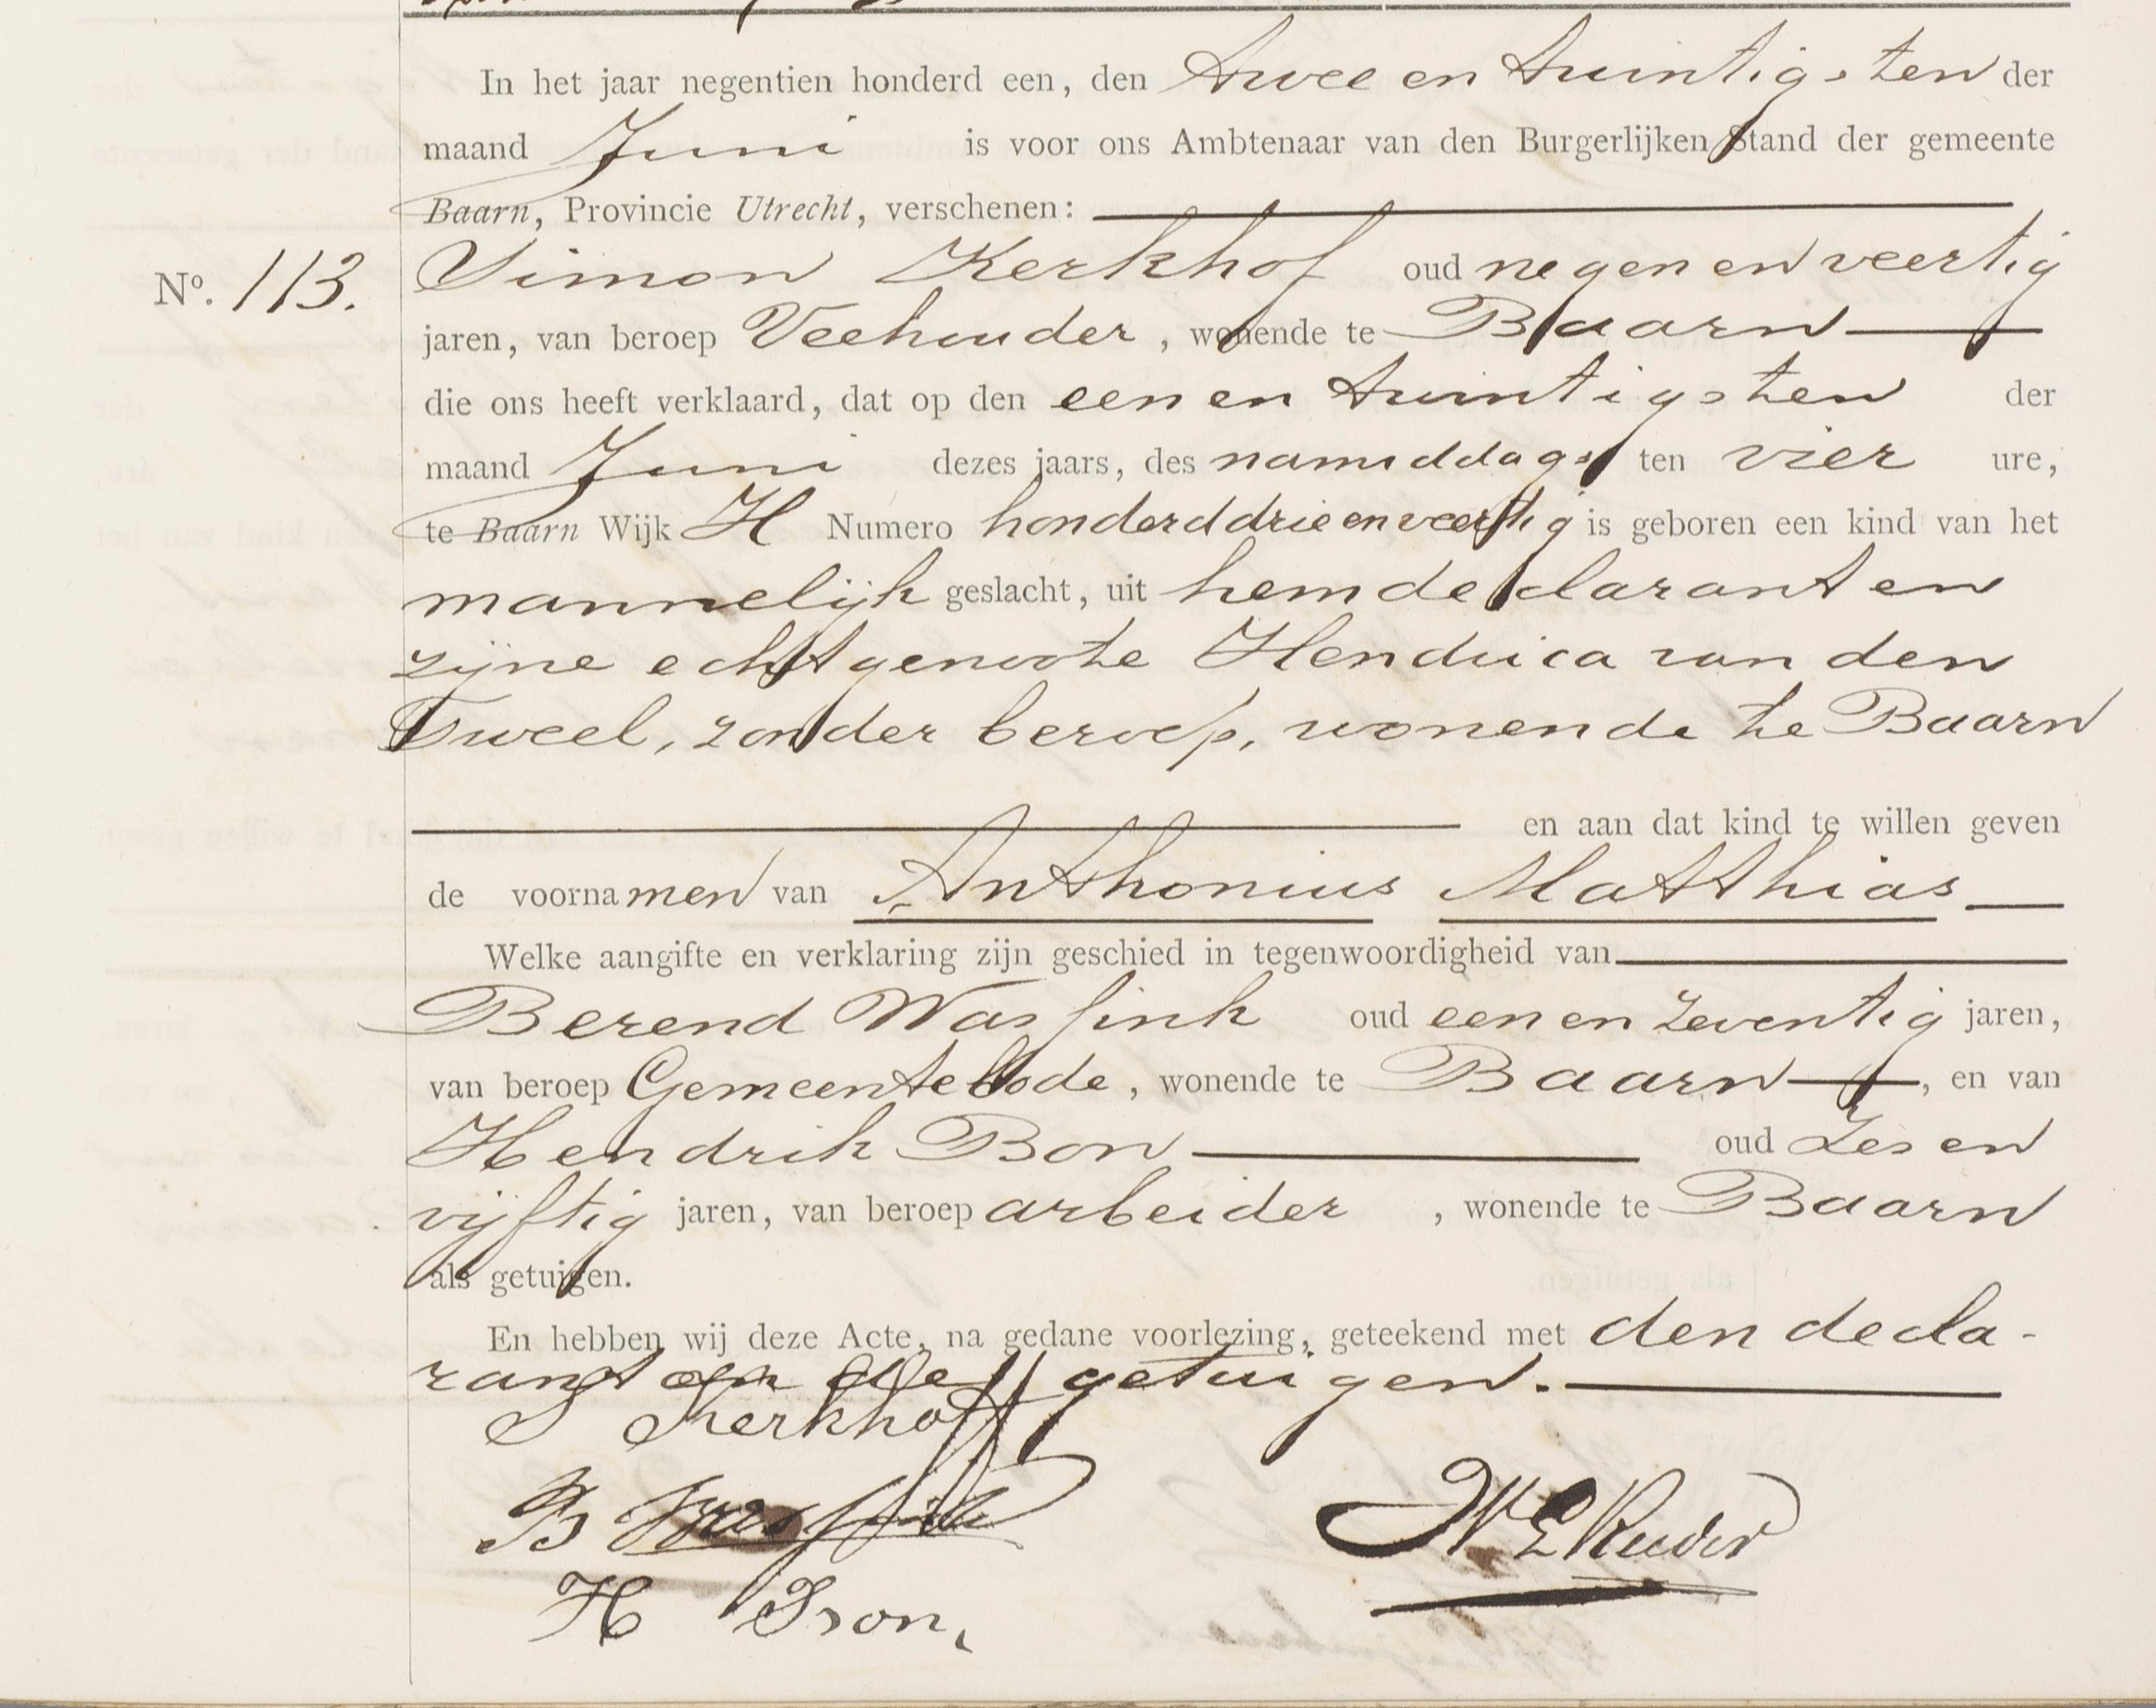 In het jaar negentien honderd een, den twee en twintigsten der
maand Juni is voor ons Ambtenaar van den Burgerlijken Stand der gemeente
Baarn, Provincie Utrecht, verschenen:
Nº. 113. Simon Kerkhof oud negen en veertig
jaren, van beroep Veehouder, wonende te Baarn
die ons heeft verklaard, dat op den een en twintigsten der
maand Juni dezes jaars, des namiddags ten vier ure,
te Baarn Wijk H Numero honderd drie en veertig is geboren een kind van het
mannelijk geslacht, uit hem declarant en
zijne echtgenoote Hendrica van den
Tweel, zonder beroep, wonende te Baarn
en aan dat kind te willen geven
de voornamen van Anthonius Matthias
Welke aangifte en verklaring zijn geschied in tegenwoordigheid van
Berend Wassink oud een en zeventig jaren,
van beroep Gemeentebode, wonende te Baarn, en van
Hendrik Bon oud zes en
vijftig jaren, van beroep arbeider, wonende te Baarn
als getuigen.
En hebben wij deze Acte, na gedane voorlezing, geteekend met den decla-
rant en de getuigen.
S Kerkhoff
B Wassink
H Bon,